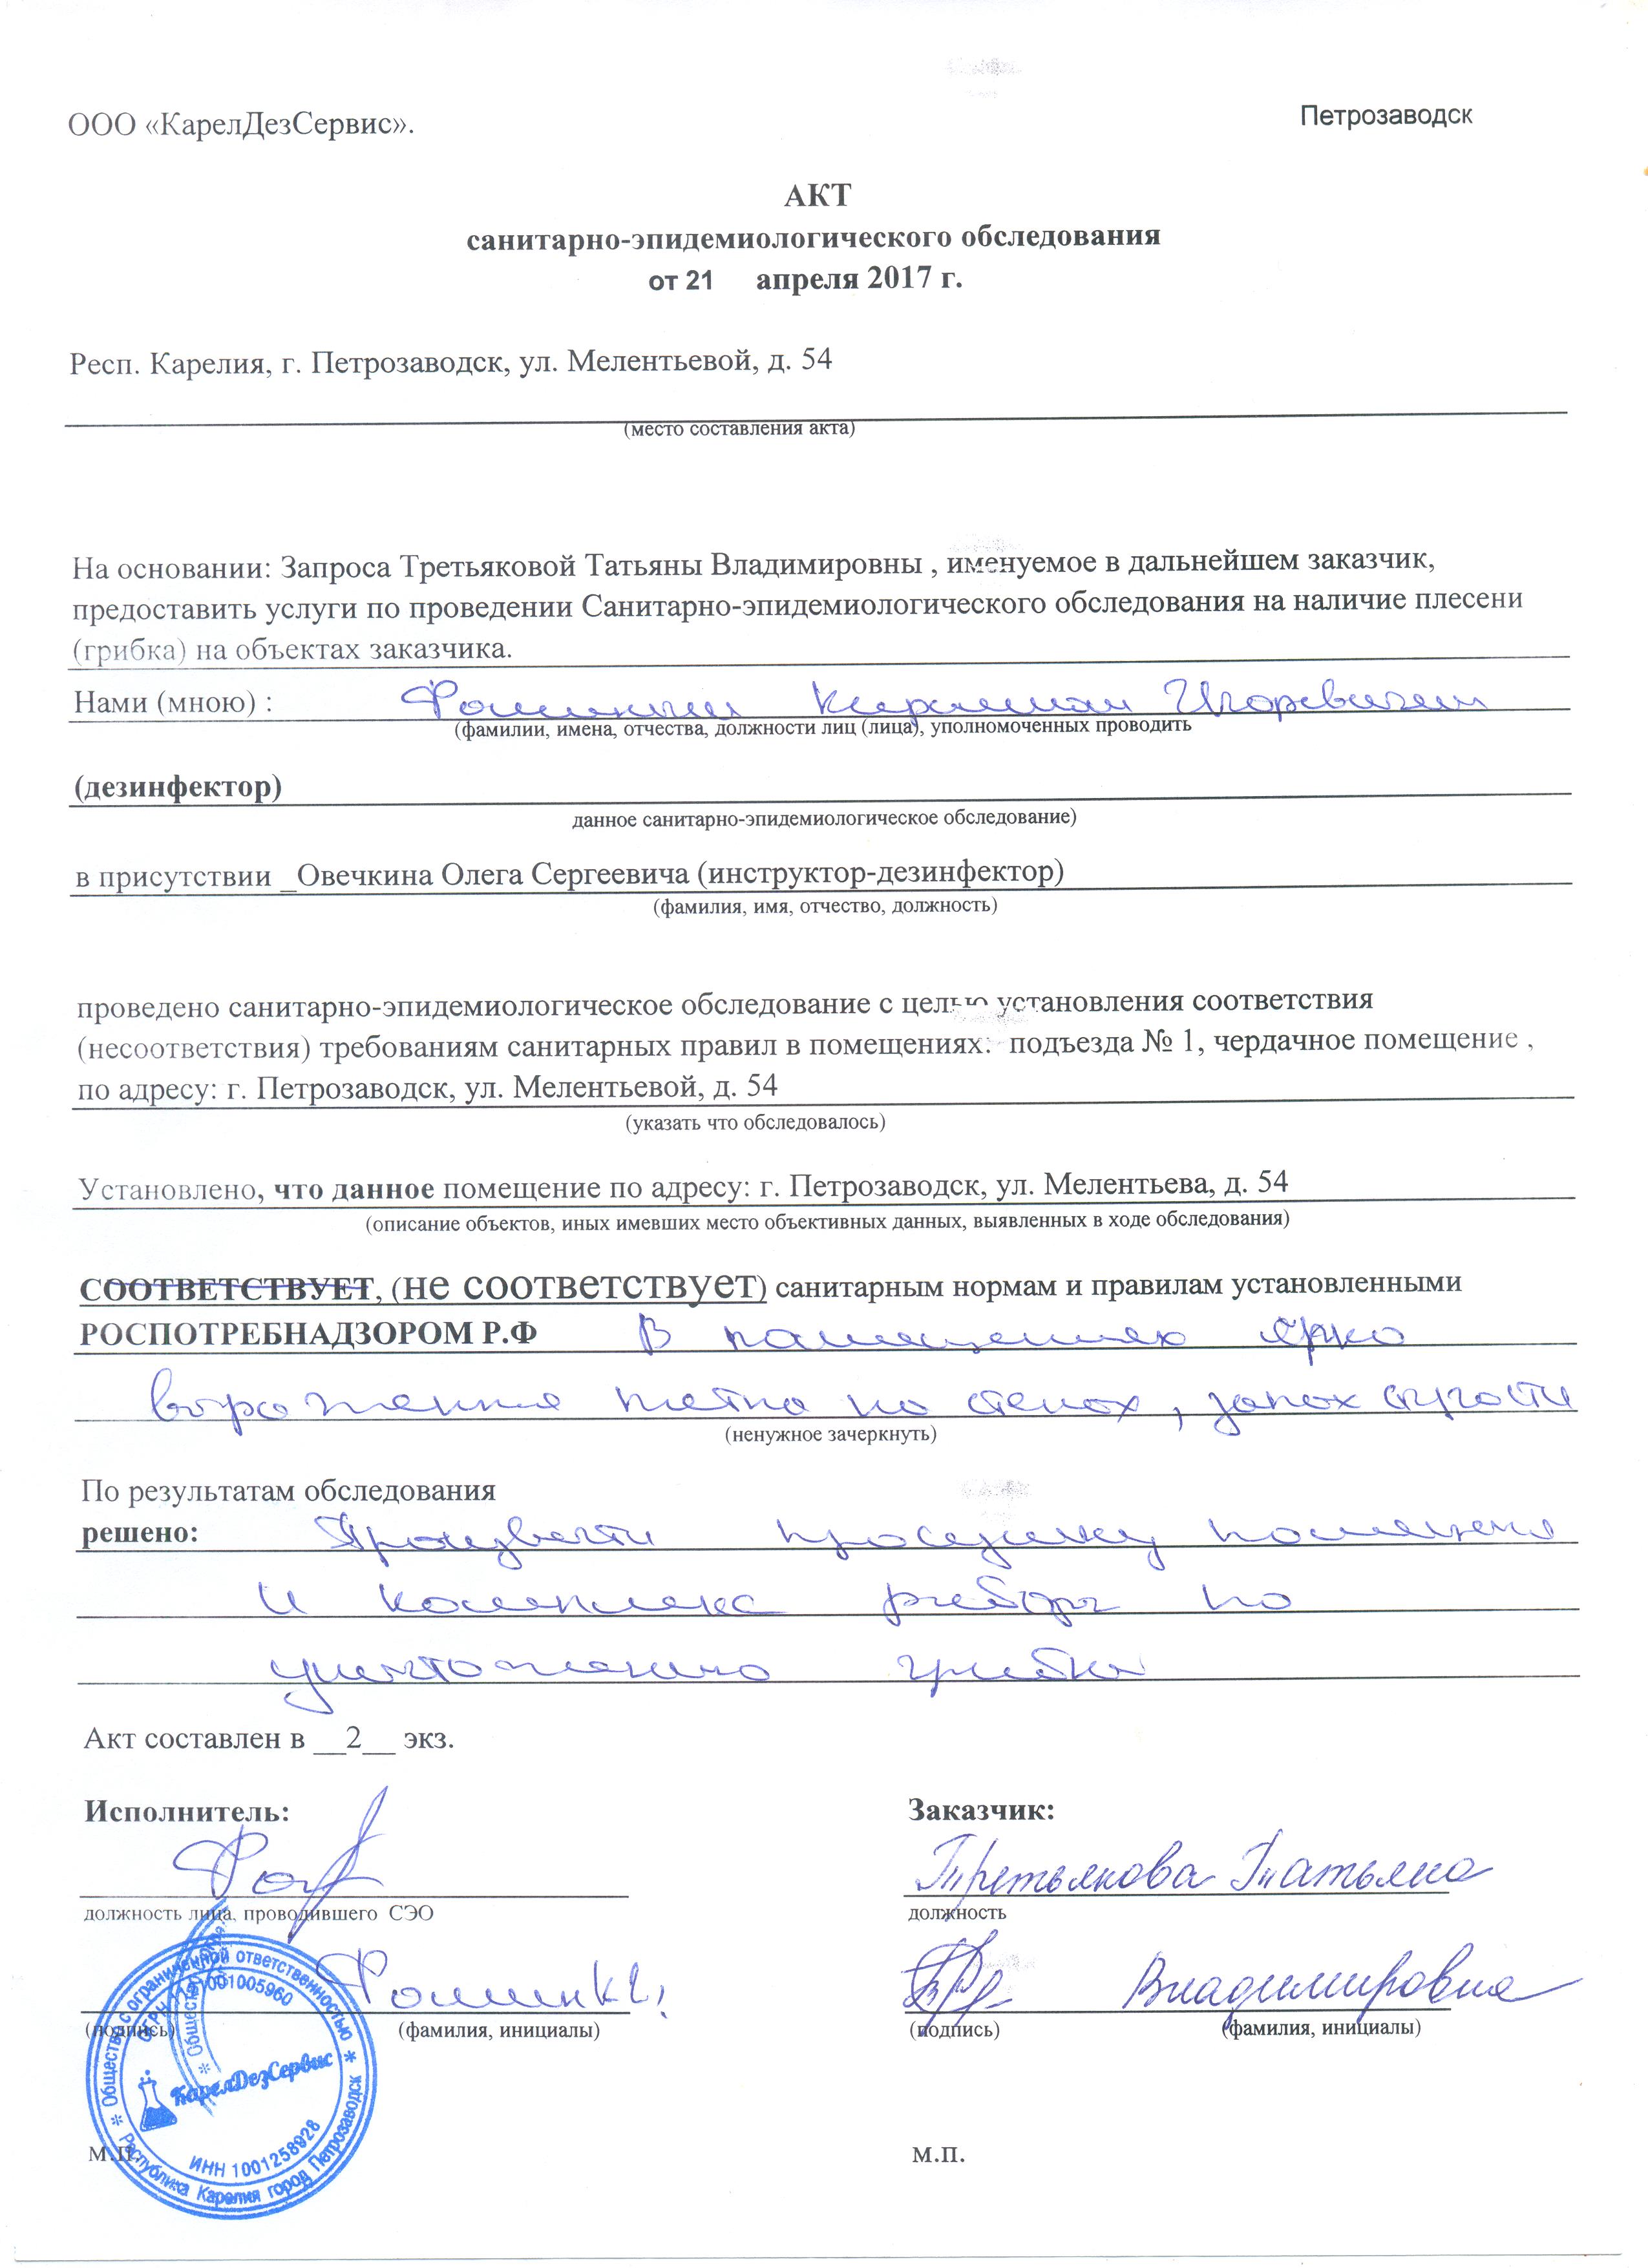 ООО «КарелДезСервис».
Петрозаводск
АКТ
санитарно-эпидемиологического обследования
от 21 апреля 2017 г.
Респ. Карелия, г. Петрозаводск, ул. Мелентьевой, д. 54
(место составления акта)
На основании: Запроса Третьяковой Татьяны Владимировны , именуемое в дальнейшем заказчик,
предоставить услуги по проведении Санитарно-эпидемиологического обследования на наличие плесени
(грибка) на объектах заказчика.
Нами (мною) : Фоминым Кириллом Игоревичем
(фамилии, имена, отчества, должности лиц (лица), уполномоченных проводить
(дезинфектор)
данное санитарно-эпидемиологическое обследование)
в присутствии _Овечкина Олега Сергеевича (инструктор-дезинфектор)
(фамилия, имя, отчество, должность)
проведено санитарно-эпидемиологическое обследование с целью установления соответствия
(несоответствия) требованиям санитарных правил в помещениях: подъезда № 1, чердачное помещение ,
по адресу: г. Петрозаводск, ул. Мелентьевой, д. 54
(указать что обследовалось)
Установлено, что данное помещение по адресу: г. Петрозаводск, ул. Мелентьева, д. 54
(описание объектов, иных имевших место объективных данных, выявленных в ходе обследования)
СООТВЕТСТВУЕТ, (не соответствует) санитарным нормам и правилам установленными
РОСПОТРЕБНАДЗОРОМ Р.Ф В помещениях ярко
выраженные пятна на стенах, запах
(ненужное зачеркнуть)
По результатам обследования
решено: Произвести просушку помещения
и комплекс работ по
уничтожению грибка
Акт составлен в __2__ экз.
Исполнитель:
Заказчик:
Третьякова Татьяна
должность лица, проводившего СЭО
должность
Фомин К.И.
Владимировна
(подпись)
(фамилия, инициалы)
(подпись)
(фамилия, инициалы)
Общество с ограниченной ответственностью
КарелДезСервис
ИНН 1001258928
Республика Карелия город Петрозаводск
м.п.
м.п.